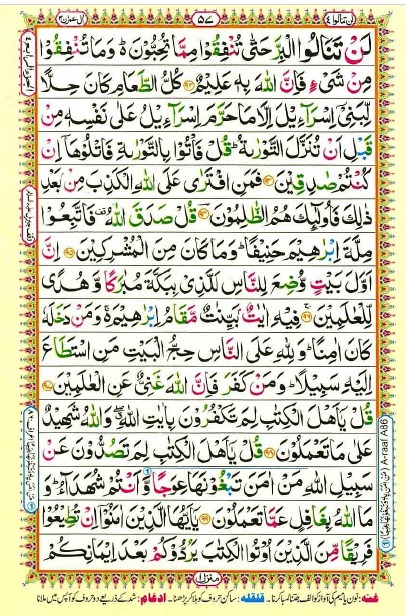 لن تنالوا ٤
٥٧
اٰل عمرٰن ٣
لَنْ تَنَالُوا الْبِرَّ حَتّٰى تُنْفِقُوْا مِمَّا تُحِبُّوْنَ ۬ؕ وَمَا تُنْفِقُوْا
مِنْ شَىْءٍ فَاِنَّ اللّٰهَ بِهٖ عَلِيْمٌ ﴿۹۲﴾ كُلُّ الطَّعَامِ كَانَ حِلًّا
لِّبَنِىْۤ اِسْرَآءِيْلَ اِلَّا مَا حَرَّمَ اِسْرَآءِيْلُ عَلٰى نَفْسِهٖ مِنْ
قَبْلِ اَنْ تُنَزَّلَ التَّوْرٰىةُ ؕ قُلْ فَاْتُوْا بِالتَّوْرٰىةِ فَاتْلُوْهَاۤ اِنْ
كُنْتُمْ صٰدِقِيْنَ ﴿۹۳﴾ فَمَنِ افْتَرٰى عَلَى اللّٰهِ الْكَذِبَ مِنْۢ بَعْدِ
ذٰلِكَ فَاُولٰٓئِكَ هُمُ الظّٰلِمُوْنَ ﴿۹۴﴾ قُلْ صَدَقَ اللّٰهُ ۟ فَاتَّبِعُوْا
مِلَّةَ اِبْرٰهِيْمَ حَنِيْفًا ؕ وَمَا كَانَ مِنَ الْمُشْرِكِيْنَ ﴿۹۵﴾ اِنَّ
اَوَّلَ بَيْتٍ وُّضِعَ لِلنَّاسِ لَلَّذِىْ بِبَكَّةَ مُبٰرَكًا وَّهُدًى
لِّلْعٰلَمِيْنَ ﴿۹۶﴾ فِيْهِ اٰيٰتٌۢ بَيِّنٰتٌ مَّقَامُ اِبْرٰهِيْمَ ۬ۚ وَمَنْ دَخَلَهٗ
كَانَ اٰمِنًا ؕ وَلِلّٰهِ عَلَى النَّاسِ حِجُّ الْبَيْتِ مَنِ اسْتَطَاعَ
اِلَيْهِ سَبِيْلًا ؕ وَمَنْ كَفَرَ فَاِنَّ اللّٰهَ غَنِىٌّ عَنِ الْعٰلَمِيْنَ ﴿۹۷﴾
قُلْ يٰۤاَهْلَ الْكِتٰبِ لِمَ تَكْفُرُوْنَ بِاٰيٰتِ اللّٰهِ ۖ وَاللّٰهُ شَهِيْدٌ
عَلٰى مَا تَعْمَلُوْنَ ﴿۹۸﴾ قُلْ يٰۤاَهْلَ الْكِتٰبِ لِمَ تَصُدُّوْنَ عَنْ
سَبِيْلِ اللّٰهِ مَنْ اٰمَنَ تَبْغُوْنَهَا عِوَجًا وَّاَنْتُمْ شُهَدَآءُ ؕ وَ
مَا اللّٰهُ بِغَافِلٍ عَمَّا تَعْمَلُوْنَ ﴿۹۹﴾ يٰۤاَيُّهَا الَّذِيْنَ اٰمَنُوْۤا اِنْ تُطِيْعُوْا
فَرِيْقًا مِّنَ الَّذِيْنَ اُوْتُوا الْكِتٰبَ يَرُدُّوْكُمْ بَعْدَ اِيْمَانِكُمْ
A-raaf A86
منزل ١
غنہ: قلقلہ: ساکن حروف کو ہلا کر پڑھنا۔ ادغام: شد کے ذریعے دو حروف کو آپس میں ملانا